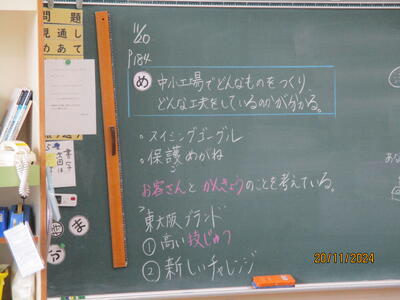 問題
見通し
めあて
11/20
P184
め 中小工場でどんなものをつくり
どんな工夫をしているのかが分かる。
。スイミングゴーグル
。保護めがね
お客さんとかんきょうのことを考えている。
東大阪ブランド
①高い技じゅつ
②新しいチャレンジ
ま
20/11/2024